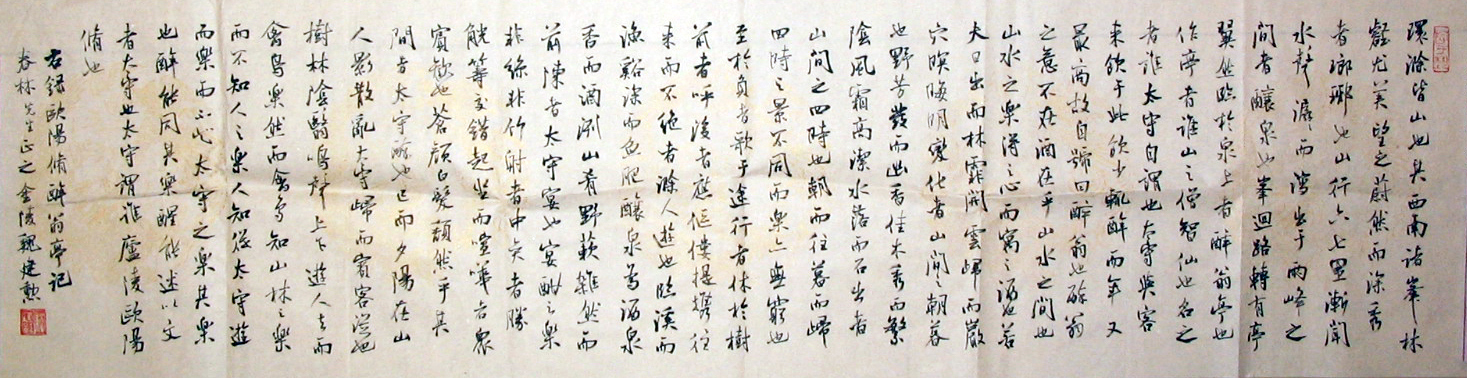 環滁皆山也其西南諸峯林
壑尤美望之蔚然而深秀
者瑯琊也山行六七里漸聞
水聲潺潺而瀉出于兩峰之
間者釀泉也峯迴路轉有亭
翼然臨於泉上者醉翁亭也
作亭者誰山之僧智仙也名之
者誰太守自謂也太守與客
來飲于此飲少輒醉而年又
最高故自號曰醉翁也醉翁
之意不在酒在乎山水之間也
山水之樂得之心而寓之酒也若
夫日出而林霏開雲歸而巖
穴暝晦明變化者山間之朝暮
也野芳發而幽香佳木秀而繁
陰風霜高潔水落而石出者
山間之四時也朝而往暮而歸
四時之景不同而樂亦無窮也
至於負者歌于途行者休於樹
前者呼後者應傴僂提攜往
來而不絕者滁人遊也臨溪而
漁谿深而魚肥釀泉為酒泉
香而酒洌山肴野蔌雜然而
前陳者太守宴也宴酣之樂
非絲非竹射者中奕者勝
觥籌交錯起坐而喧嘩者眾
賓歡也蒼顏白髮頹然乎其
間者太守醉也已而夕陽在山
人影散亂太守歸而賓客從也
樹林陰翳鳴聲上下遊人去而
禽鳥樂也然而禽鳥知山林之樂
而不知人之樂人知從太守遊
而樂而不知太守之樂其樂
也醉能同其樂醒能述以文
者太守也太守謂誰廬陵歐陽
脩也
右録歐陽脩醉翁亭记
春林先生正之金陵魏建勲